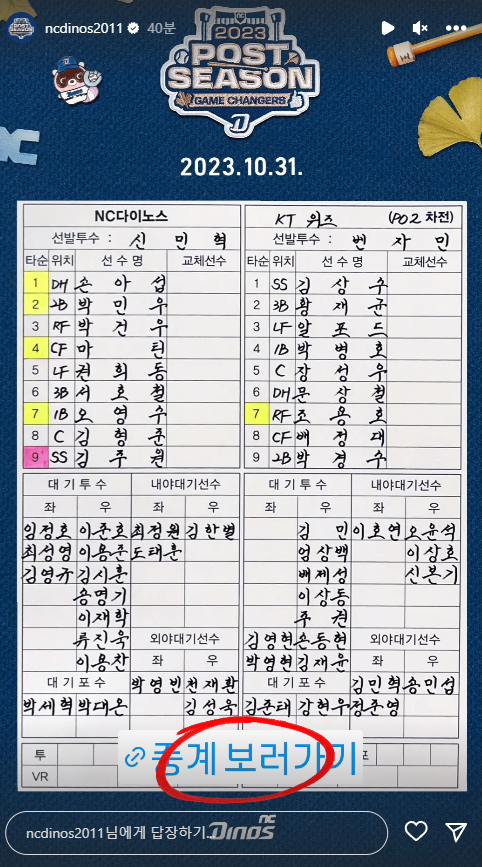 ncdinos2011 40분
NC
2023
POST
SEASON
GAME CHANGERS
D
2023.10.31.
NC다이노스
선발투수 : 신민혁
타순 위치 선수명 교체선수
1 DH 손아섭
2 2B 박민우
3 RF 박건우
4 CF 마틴
5 LF 권희동
6 3B 서호철
7 1B 오영수
8 C 김형준
9 SS 김주원
KT 위즈 (PO2 차전)
선발투수 : 벤자민
타순 위치 선수명 교체선수
1 SS 김상수
2 3B 황재균
3 LF 알포드
4 1B 박병호
5 C 장성우
6 DH 문상철
7 RF 조용호
8 CF 배정대
9 2B 박경수
대기투수 내야대기선수
좌 우 좌 우
임정호 이준호 최정원 김한별
최성영 이용준 도태훈
김영규 김시훈
송명기
이재학
류진욱 외야대기선수
이용찬 좌 우
대기포수 박영빈 천재환
박세혁 박대온 김성욱
대기투수 내야대기선수
좌 우 좌 우
김민 이호연 오윤석
엄상백 이상호
배제성 신본기
이상동
주권
김영현 손동현 외야대기선수
박영현 김재윤 좌 우
대기포수 김민혁 송민섭
김준태 강현우 정준영
투 포
VR
중계 보러가기
ncdinos2011님에게 답장하기...
NC
DINOS